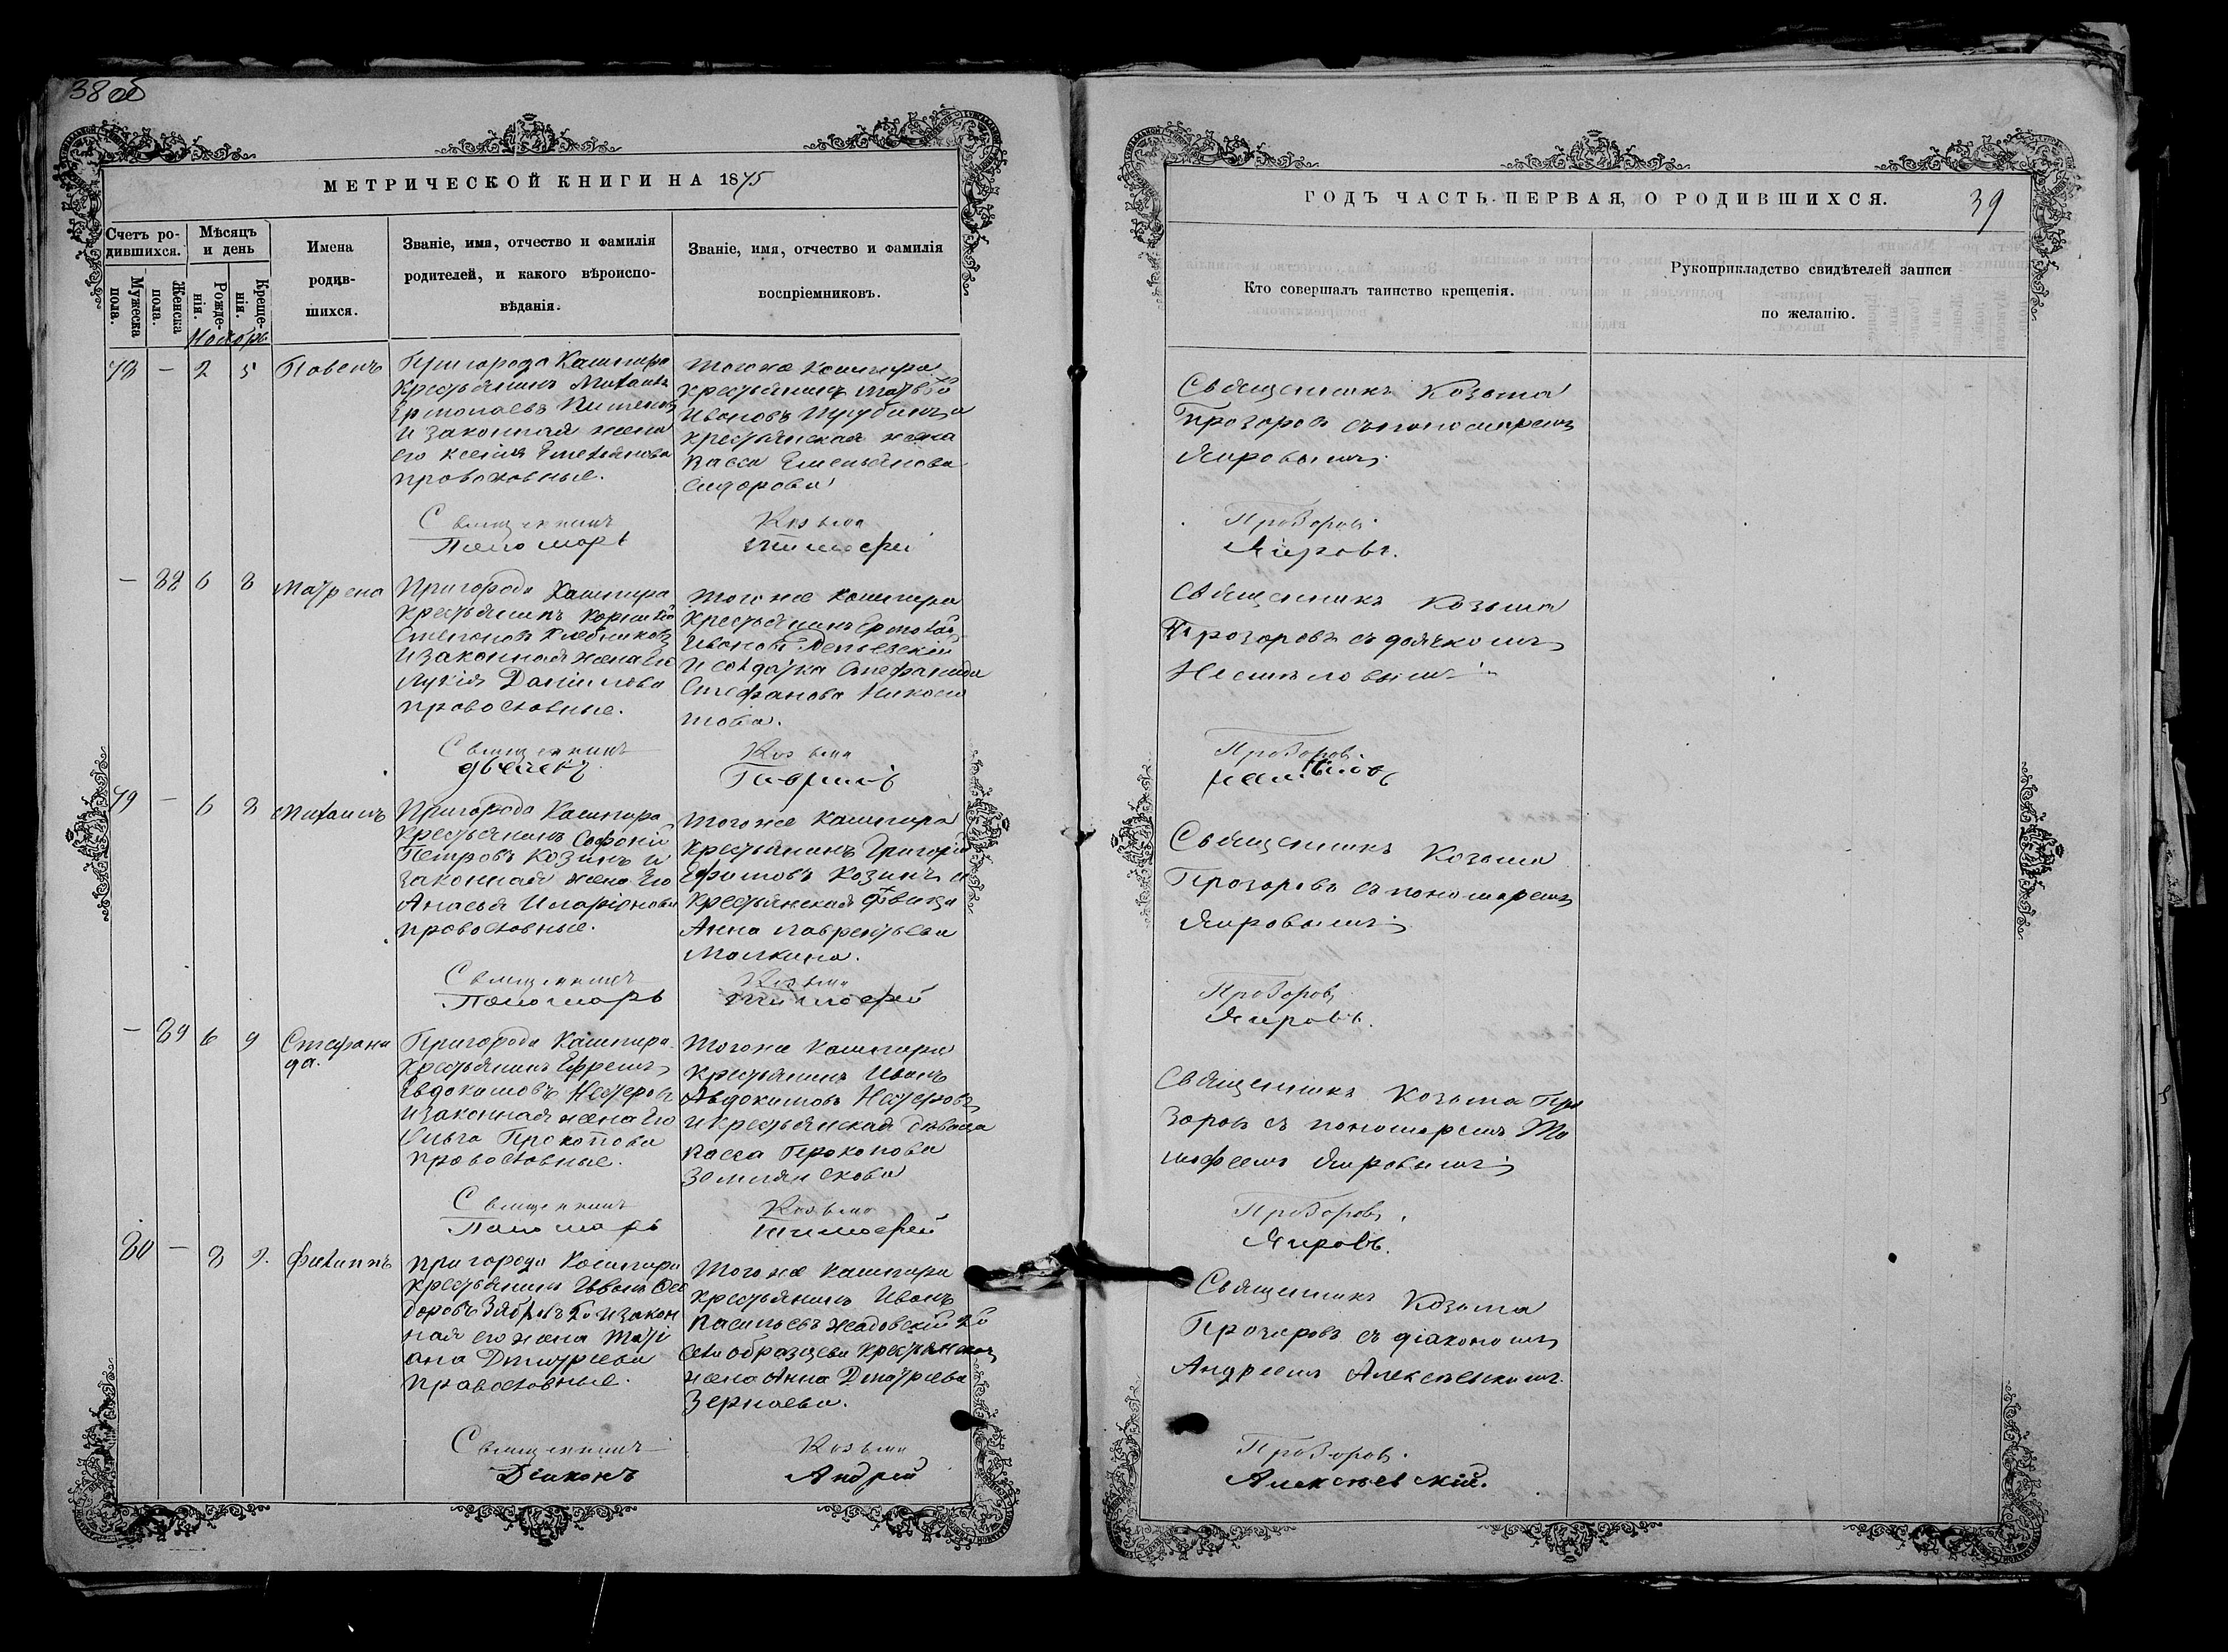 38 об
МЕТРИЧЕСКОЙ КНИГИ НА 1875
Счетъ ро-
дившихся.
Мѣсяцъ
и день
Мужеска
пола.
Женска
пола.
Рожде-
нія.
Креще-
нія.
Ноябрь
Имена
родив-
шихся.
Званіе, имя, отчество и фамилія
родителей, и какого вѣроиспо-
вѣданія.
Званіе, имя, отчество и фамилія
воспріемниковъ.
78 — 2 5 Павелъ
Пригорода Кашпира
Крестьянинъ Михаилъ
Ермолаевъ
и законная жена
его Ксенія Емельянова
православные.
Того же Кашпира
крестьянинъ Матвѣй
Ивановъ Трубинъ и
крестьянская жена
Васса Емельянова
Сидорова
Священникъ Козьма
Пономарь Тимофей
— 88 6 8 Матрена
Пригорода Кашпира
Крестьянинъ Корнилій
Степановъ Хлебниковъ
и законная жена его
Лукія Данилова
православные.
Того же Кашпира
Крестьянинъ Ермолай
Ивановъ
и солдатка Стефанида
Стефанова
Священникъ Козьма
дьячекъ Гавриилъ
79 — 6 8 Михаилъ
Пригорода Кашпира
Крестьянинъ Софоній
Петровъ Козинъ и
законная жена его
Анасья Иларіонова
православные.
Того же Кашпира
Крестьянинъ Григорій
Ефимовъ Козинъ и
Крестьянская дѣвица
Анна Лаврентьева
Малкина.
Священникъ Козьма
Пономарь Тимофей
— 89 6 9 Стефани
да.
Пригорода Кашпира
Крестьянинъ Ефремъ
Евдокимовъ Нестеровъ
и законная жена его
Ольга Прокопова
православные.
Того же Кашпира
Крестьянинъ Иванъ
Авдокимовъ Нестеровъ
и крестьянская дѣвица
Васса Прокопова
Землянскова
Священникъ Козьма
Пономарь Тимофей
80 — 8 9. Филиппъ
Пригорода Кашпира
Крестьянинъ Иванъ Ѳео
доровъ и закон
ная его жена Тати
ана Дмитріева
православные.
Того же Кашпира
Крестьянинъ Иванъ
Васильевъ Жадовскій и
села Образцева Крестьянская
жена Анна Дмитріева
Зернаева.
Священникъ Козьма
Діаконъ Андрей
ГОДЪ ЧАСТЬ ПЕРВАЯ, О РОДИВШИХСЯ.
39
Кто совершалъ таинство крещенія.
Рукоприкладство свидѣтелей записи
по желанію.
Священникъ Козьма
Прозоровъ съ пономаремъ
Яировымъ
Прозоровъ.
Яировъ.
Священникъ Козьма
Прозоровъ съ дьячкомъ
Несмѣловымъ
Прозоровъ.
Несмѣловъ
Священникъ Козьма
Прозоровъ съ пономаремъ
Яировымъ
Прозоровъ
Яировъ.
Священникъ Козьма Про
зоровъ съ пономаремъ Ти
мофеемъ Яировымъ
Прозоровъ.
Яировъ.
Священникъ Козьма
Прозоровъ съ діакономъ
Андреемъ Алексѣевскимъ.
Прозоровъ.
Алексѣевскій.